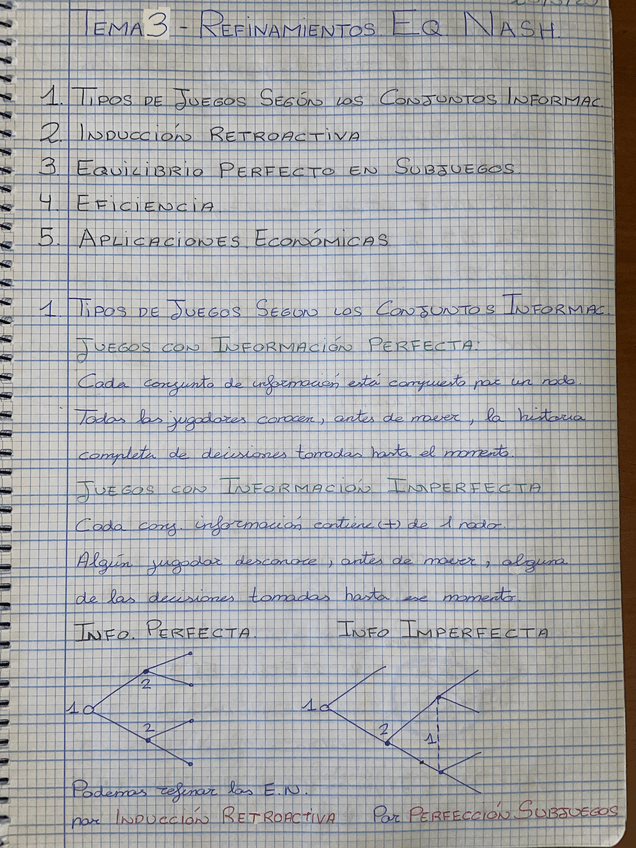 TEMA 3 - REFINAMIENTOS EQ. NASH.
1. TIPOS DE JUEGOS SEGÚN LOS CONJUNTOS INFORMAC.
2. INDUCCIÓN RETROACTIVA
3. EQUILIBRIO PERFECTO EN SUBJUEGOS
4. EFICIENCIA
5. APLICACIONES ECONÓMICAS
1. TIPOS DE JUEGOS SEGUN LOS CONJUNTOS INFORMAC.
JUEGOS CON INFORMACIÓN PERFECTA:
Cada conjunto de información está compuesto por un nodo.
Todos los jugadores conocen, antes de mover, la historia
completa de decisiones tomadas hasta el momento.
JUEGOS CON INFORMACIÓN IMPERFECTA
Cada conj. información contiene (+) de 1 nodo.
Algún jugador desconoce, antes de mover, alguna
de las decisiones tomadas hasta ese momento.
INFO. PERFECTA. INFO IMPERFECTA
1 2 2
1 2 1
Podemos refinar los E.N.
por INDUCCIÓN RETROACTIVA Por PERFECCIÓN SUBJUEGOS